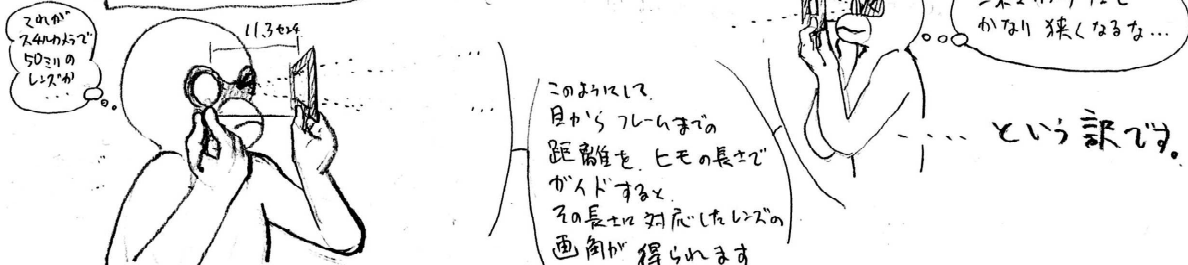 これが
スチルカメラで
50ミリの
レンズか
...
11.3センチ
このようにして、
目から フレームまでの
距離を、ヒモの長さで
ガイドすると、
その長さに対応したレンズの
画角が 得られます
かなり 狭くなるな...
..... という訳です。